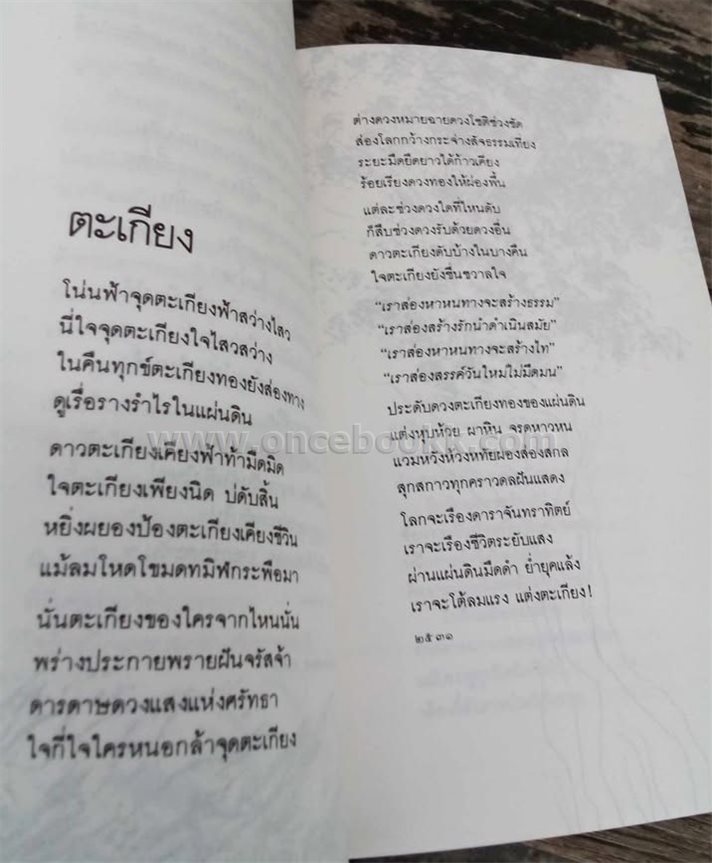 ตะเกียง
โน่นฟ้าจุดตะเกียงฟ้าสว่างไสว
นี่ใจจุดตะเกียงใจไสวสว่าง
ในคืนทุกข์ตะเกียงทองยังส่องทาง
ดูเรื่อรางรำไรในแผ่นดิน
ดาวตะเกียงเคียงฟ้าท้ามืดมิด
ใจตะเกียงเพียงนิด บ่ดับสิ้น
หยิ่งผยองป้องตะเกียงเคียงชีวิน
แม้ลมโหดโขมดทมิฬกระพือมา
นั่นตะเกียงของใครจากไหนนั่น
พร่างประกายพรายฝันจรัสจ้า
ดารดาษดวงแสงแห่งศรัทธา
ใจกี่ใจใครหนอกล้าจุดตะเกียง
ต่างดวงหมายฉายดวงโชติช่วงชัด
ส่องโลกกว้างกระจ่างสัจธรรมเที่ยง
ระยะมืดยืดยาวได้ก้าวเคียง
ร้อยเรียงดวงทองให้ผ่องพื้น
แต่ละช่วงดวงใดที่ไหนดับ
ก็สืบช่วงดวงรับด้วยดวงอื่น
ดาวตะเกียงดับบ้างในบางคืน
ใจตะเกียงยังชื่นชวาลใจ
“เราส่องหาหนทางจะสร้างธรรม”
“เราส่องสร้างรักนำดำเนินสมัย”
“เราส่องหาหนทางจะสร้างไท”
“เราส่องสรรค์วันใหม่ไม่มืดมน”
ประดับดวงตะเกียงทองของแผ่นดิน
แต่งหุบห้วย ผาหิน จรดหาวหน
แวมหวังห้วงหทัยผองส่องสกล
สุกสกาวทุกคราวดลฝันแสดง
โลกจะเรืองดาราจันทราทิตย์
เราจะเรืองชีวิตระยับแสง
ผ่านแผ่นดินมืดดำ ย่ำยุคแล้ง
เราจะโต้ลมแรง แต่งตะเกียง!
๒๕๓๑
www.oncebookk.com